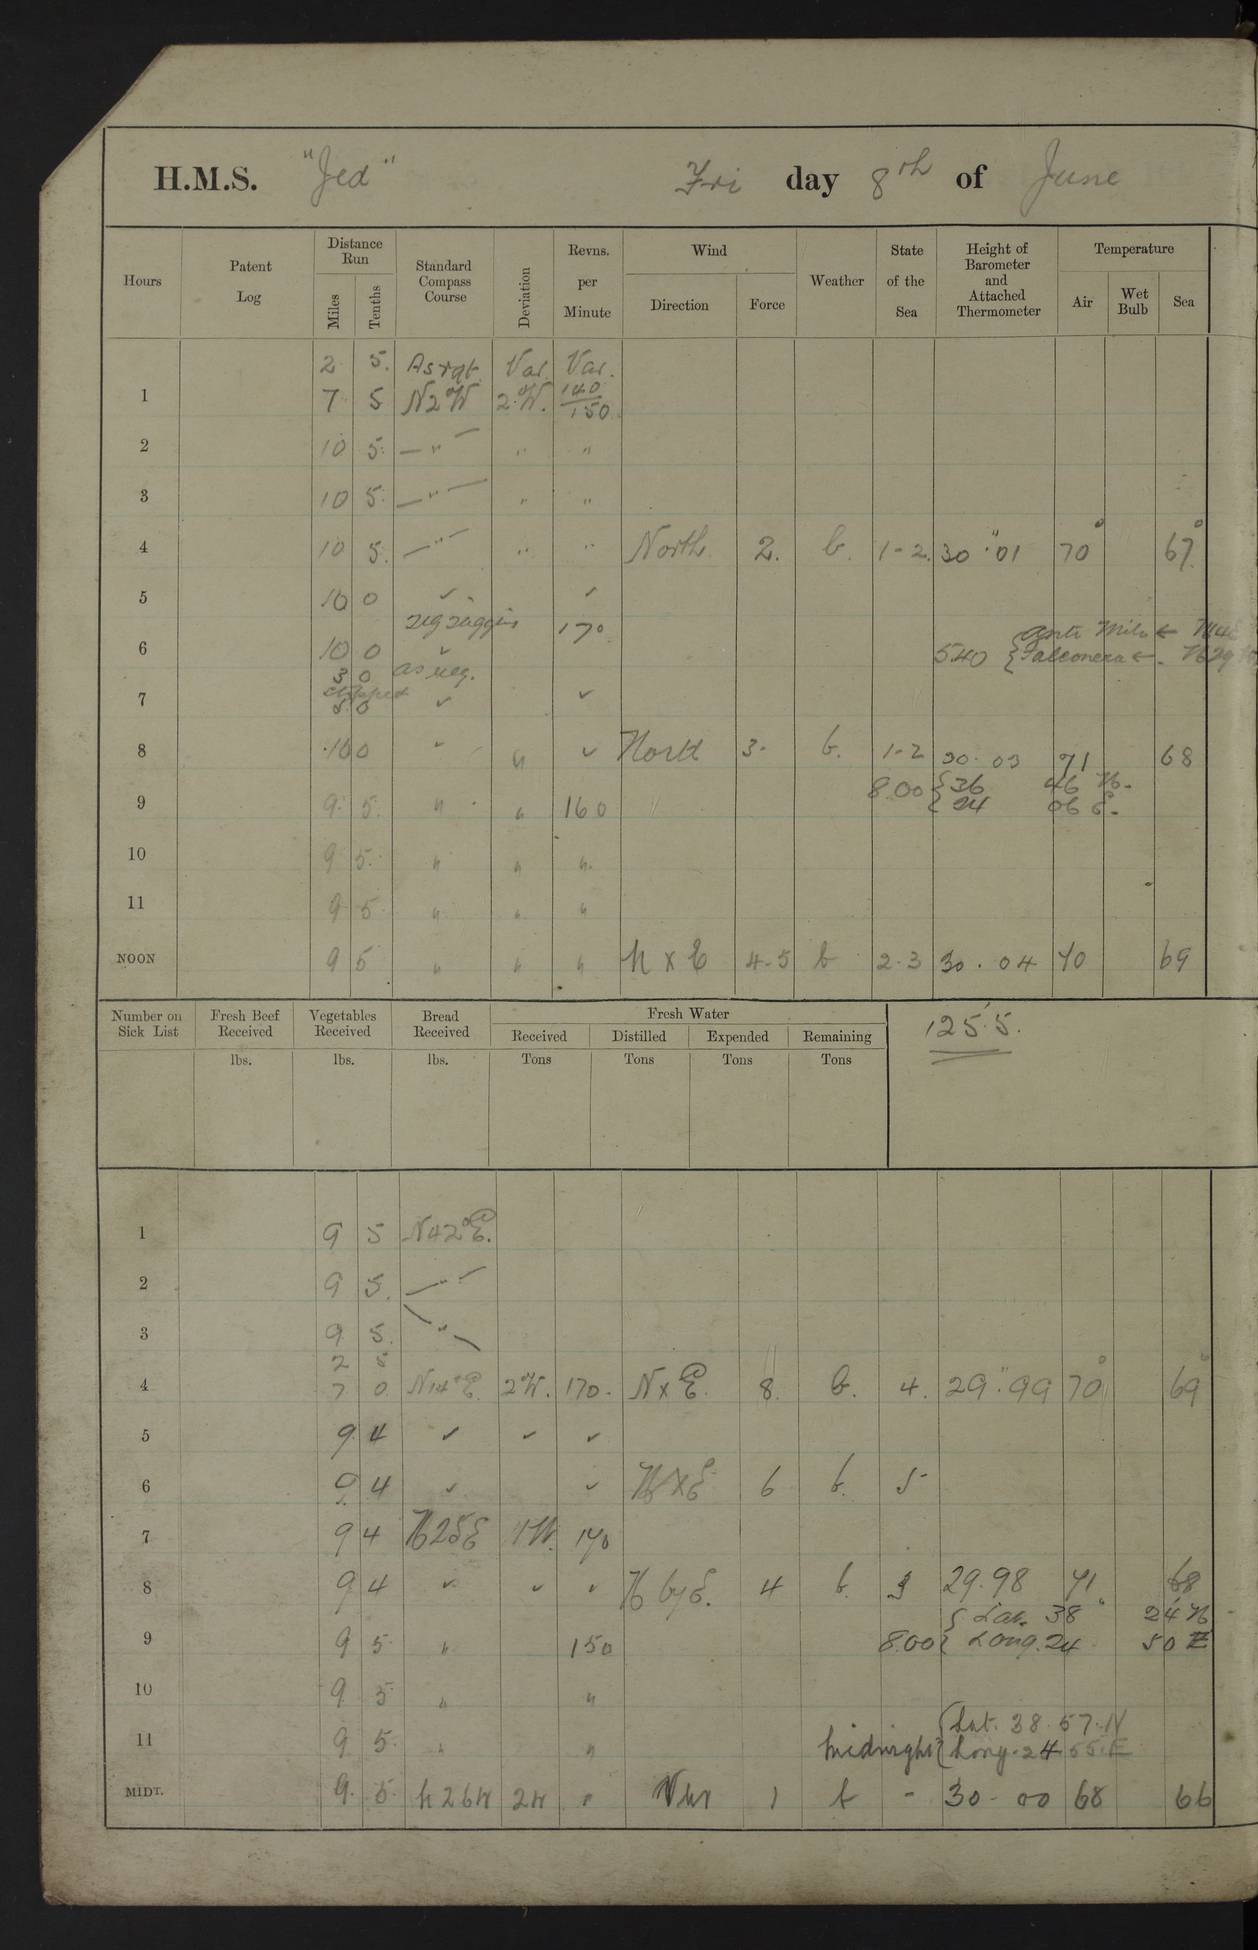 H.M.S. "Jed" Fri day 8th of June
Hours Patent Log Distance Run Miles Tenths Standard Compass Course Deviation Revns. per Minute Wind Direction Force Weather State of the Sea Height of Barometer and Attached Thermometer Temperature Air Wet Bulb Sea
2 5. As rqt. Var. Var.
1 7 5 N2°W 2°W. 140/150
2 10 5. — " — " "
3 10 5. — " — " "
4 10 5. — " — " " North 2. b. 1-2 30".01 70° 67°
5 10 0 ✓ ✓
zigzagging 170
6 10 0 ✓ 540 { Anti Milo ← N4
Falconera ← N29
3 0 as req.
stopped
7 5 0 ✓ ✓
8 10 0 " " ✓ North 3. b. 1-2 30.03 71 68
8.00 { 36 46 N.
24 06 E.
9 9 5. " " 160
10 9 5. " " "
11 9 5 " " "
NOON 9 5 " " " N x E 4-5 b 2.3 30.04 70 69
Number on Sick List Fresh Beef Received lbs. Vegetables Received lbs. Bread Received lbs. Fresh Water Received Tons Distilled Tons Expended Tons Remaining Tons
125.5.
1 9 5 N42°E.
2 9 5. — " —
3 9 5. — " —
2 5
4 7 0 N14°E. 2°W. 170. N x E. 8. b. 4. 29".99 70° 69°
5 9 4 ✓ ✓ ✓
6 9 4 ✓ ✓ N x E 6 b. 5
7 9 4 N25E 1W. 170
8 9 4 ✓ ✓ " N by E. 4 b. 3 29.98 71 68
{ Lat. 38° 24' N
8.00 { Long. 24 50 E
9 9 5 " 150
10 9 5 " "
{ Lat. 38 57.N
Midnight { Long. 24 55.E
11 9 5. " "
MIDT. 9. 5. N26W 2W " Var 1 b - 30.00 68 66